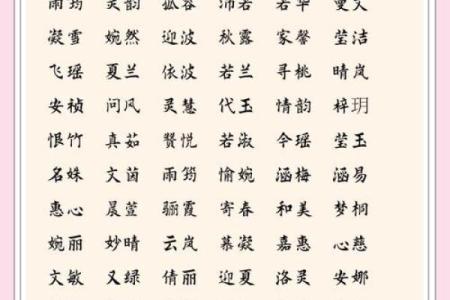 雨筠 灵韵 孤容 沛若 若华 曼文
凝雪 婉然 迎波 秋露 家馨 莹洁
飞瑶 夏兰 依波 若兰 寻桃 晴岚
安祯 问风 灵慧 代玉 情韵 梓玥
恨竹 真茹 赟悦 若淑 令瑶 莹玉
名姝 文茵 雨筠 愉婉 涵梅 涵易
惠心 晨萱 骊霞 寄春 和美 梦桐
婉丽 妙晴 云岚 慕凝 嘉惠 心慈
文敏 又绿 倩丽 迎夏 洛灵 安娜